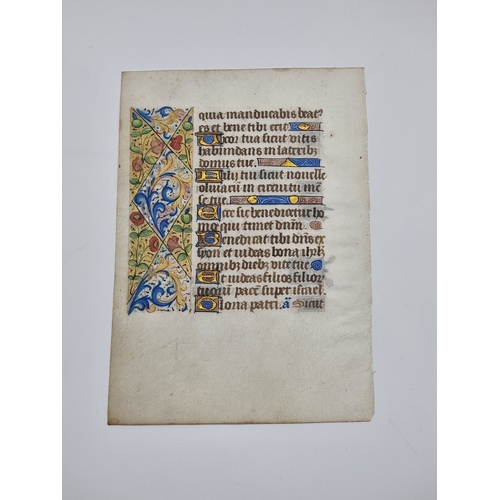 quia manducabis beat'
es et bene tibi erit
Uxor tua sicut vitis
habundans in laterib3
domus tue.
Filij tui sicut novelle
olivarū in circuitu mē
se tue.
Ecce sic benedicetur ho
mo qui timet dnm̄.
Benedicat tibi dn̄s ex
syon et videas bona ihrl̄m
omnib3 dieb3 vite tue
Et videas filios filior
tuorū pacē super israel.
Gloria patri. ā Sicut